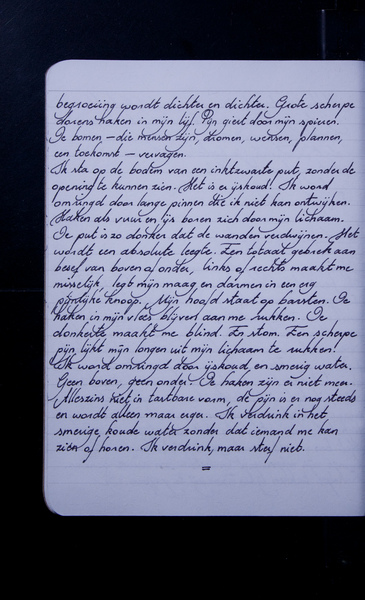 begroeiing wordt dichter en dichter. Grote scherpe
dorens haken in mijn lijf. Pijn giert door mijn spieren.
De bomen – die mensen zijn, dromen, wensen, plannen,
een toekomst – vervagen.
Ik sta op de bodem van een inktzwarte put, zonder de
opening te kunnen zien. Het is er ijskoud! Ik word
omringd door lange pinnen die ik niet kan ontwijken.
Haken als vuur en ijs boren zich door mijn lichaam.
De put is zo donker dat de wanden verdwijnen. Het
wordt een absolute leegte. Een totaal gebrek aan
besef van boven of onder, links of rechts maakt me
misselijk, legt mijn maag en darmen in een erg
pijnlijke knoop. Mijn hoofd staat op barsten. De
haken in mijn vlees blijven aan me rukken. De
donkerte maakt me blind. En stom. Een scherpe
pijn lijkt mijn longen uit mijn lichaam te rukken!
Ik word omringd door ijskoud, en smerig water.
Geen boven, geen onder. De haken zijn er niet meer.
Alleszins niet in tastbare vorm, de pijn is er nog steeds
en wordt alleen maar erger. Ik verdrink in het
smerige, koude water zonder dat iemand me kan
zien of horen. Ik verdrink, maar sterf niet.